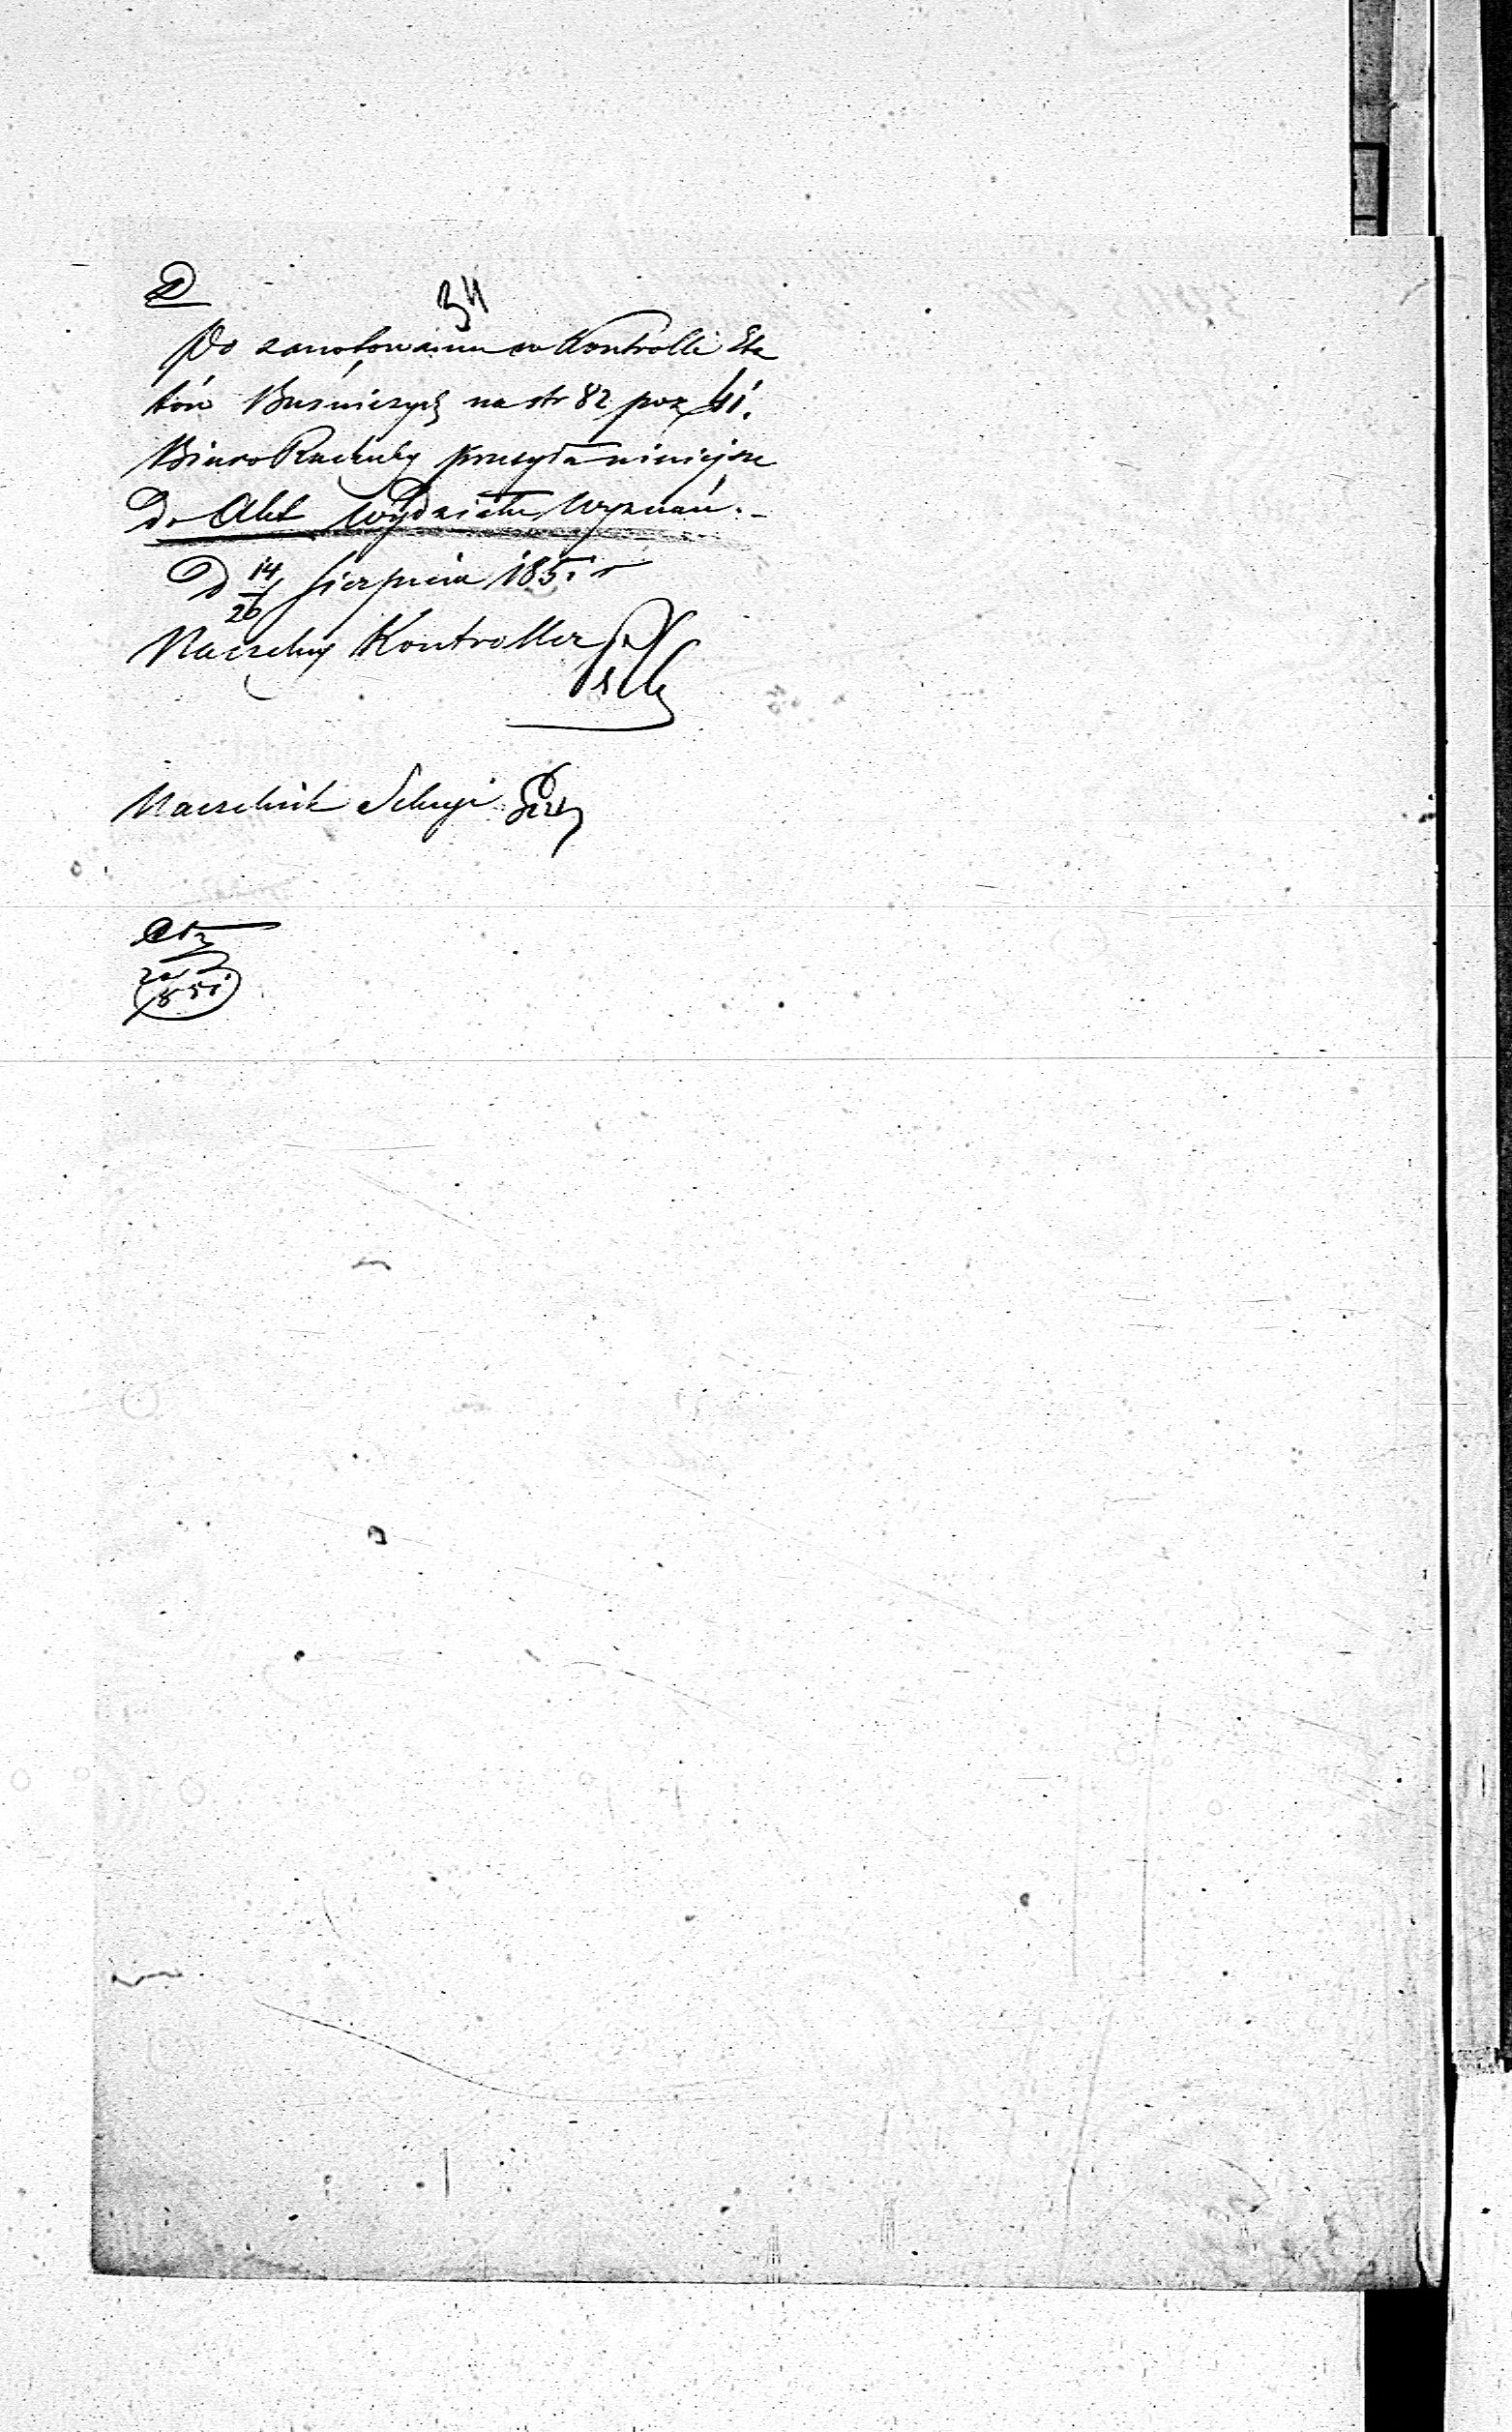 D
34
Po zanotowaniu w Kontrolli Eta
tów Bużniczych na str 82 poz 41.
Biuro Rachuby przesyła niniejsze
Do Akt Wydziału Wyznań._
D 14/26 Sierpnia 1851 r
Naczelny Kontroller
Naczelnik Sekcyi
851